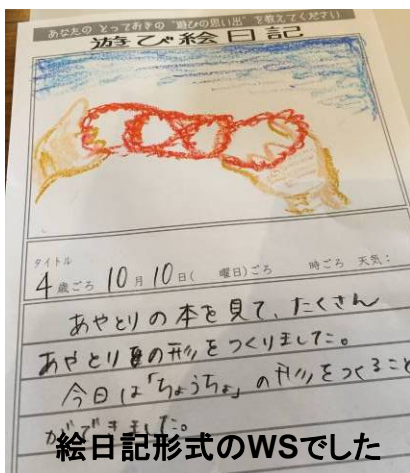 あなたの とっておきの "遊びの思い出" を教えてください
遊び絵日記
タイトル
4歳ごろ 10月10日( 曜日)ごろ 時ごろ 天気:
あやとりの本を見て、たくさん
あやとりの形をつくりました。
今日は「ちょうちょ」の形をつくること
ができました。
絵日記形式のWSでした